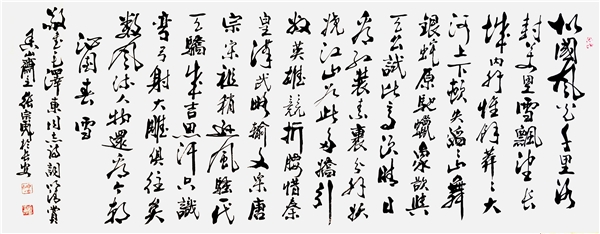 北國風光千里冰
封萬里雪飄望長
城內外惟餘莽々大
河上下頓失滔々山舞
銀蛇原馳蠟象欲與
天公試比高須晴日
看紅裝素裹分外妖
嬈江山如此多嬌引
英雄競折腰惜秦
皇漢武略輸文采唐
宗宋祖稍遜風騷一代
天驕成吉思汗只識
彎弓射大雕俱往矣
數風流人物還看今朝
沁園春雪
敬書毛澤東同志詞賞
齋主張於長安